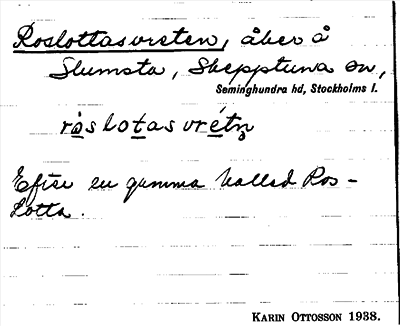 Roslottasvreten, åker å
Slumsta, Skepptuna sn,
Seminghundra hd, Stockholms l.
ròslotasvrétn
Efter en gumma kallad Ros-
Lotta.
KARIN OTTOSSON 1938.